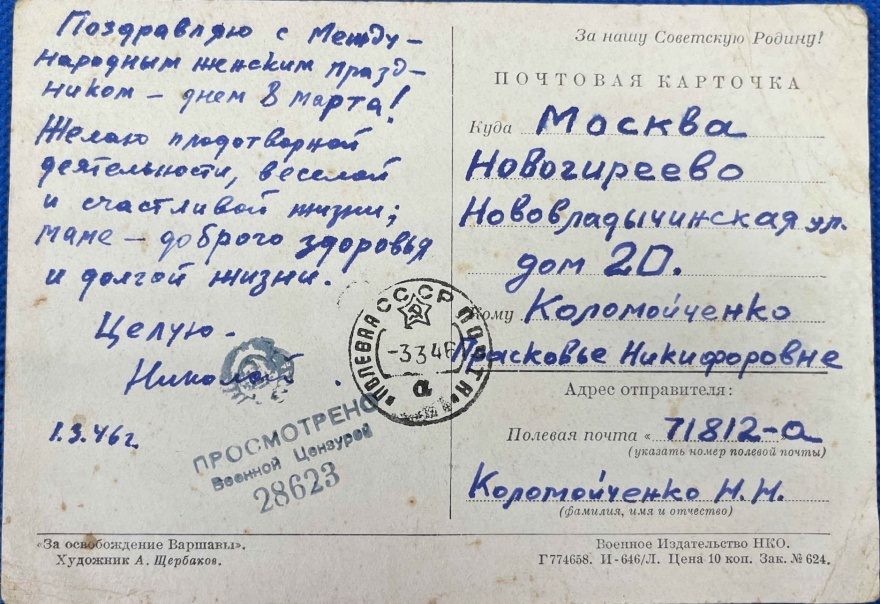 Поздравляю с Между-
народным женским празд-
ником – днем 8 марта!
Желаю плодотворной
деятельности, веселой
и счастливой жизни;
маме – доброго здоровья
и долгой жизни.
Целую –
Николай.
1.3.46г.
ПРОСМОТРЕНО
Военной Цензурой
28623
«За освобождение Варшавы».
Художник А. Щербаков.
СССР
ПОЛЕВАЯ ПОЧТА
-3346
а
За нашу Советскую Родину!
ПОЧТОВАЯ КАРТОЧКА
Куда Москва
Новогиреево
Нововладычинская ул.
дом 20.
Кому Коломойченко
Прасковье Никифоровне
Адрес отправителя:
Полевая почта «71812-а
(указать номер полевой почты)
Коломойченко Н.Н.
(фамилия, имя и отчество)
Военное Издательство НКО.
Г774658. И-646/Л. Цена 10 коп. Зак. № 624.